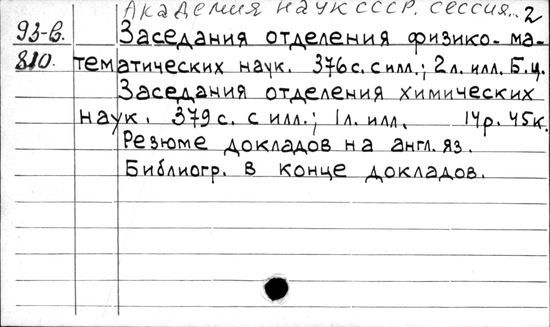 Академия наук СССР. Сессия... 2
93-б. Заседания отделения физико-ма-
810. тематических наук. 376 с. с илл.; 2 л. илл. Б.ц.
Заседания отделения химических
наук. 379 с. с илл.; 1 л. илл. 14 р. 45 к.
Резюме докладов на англ. яз.
Библиогр. в конце докладов.